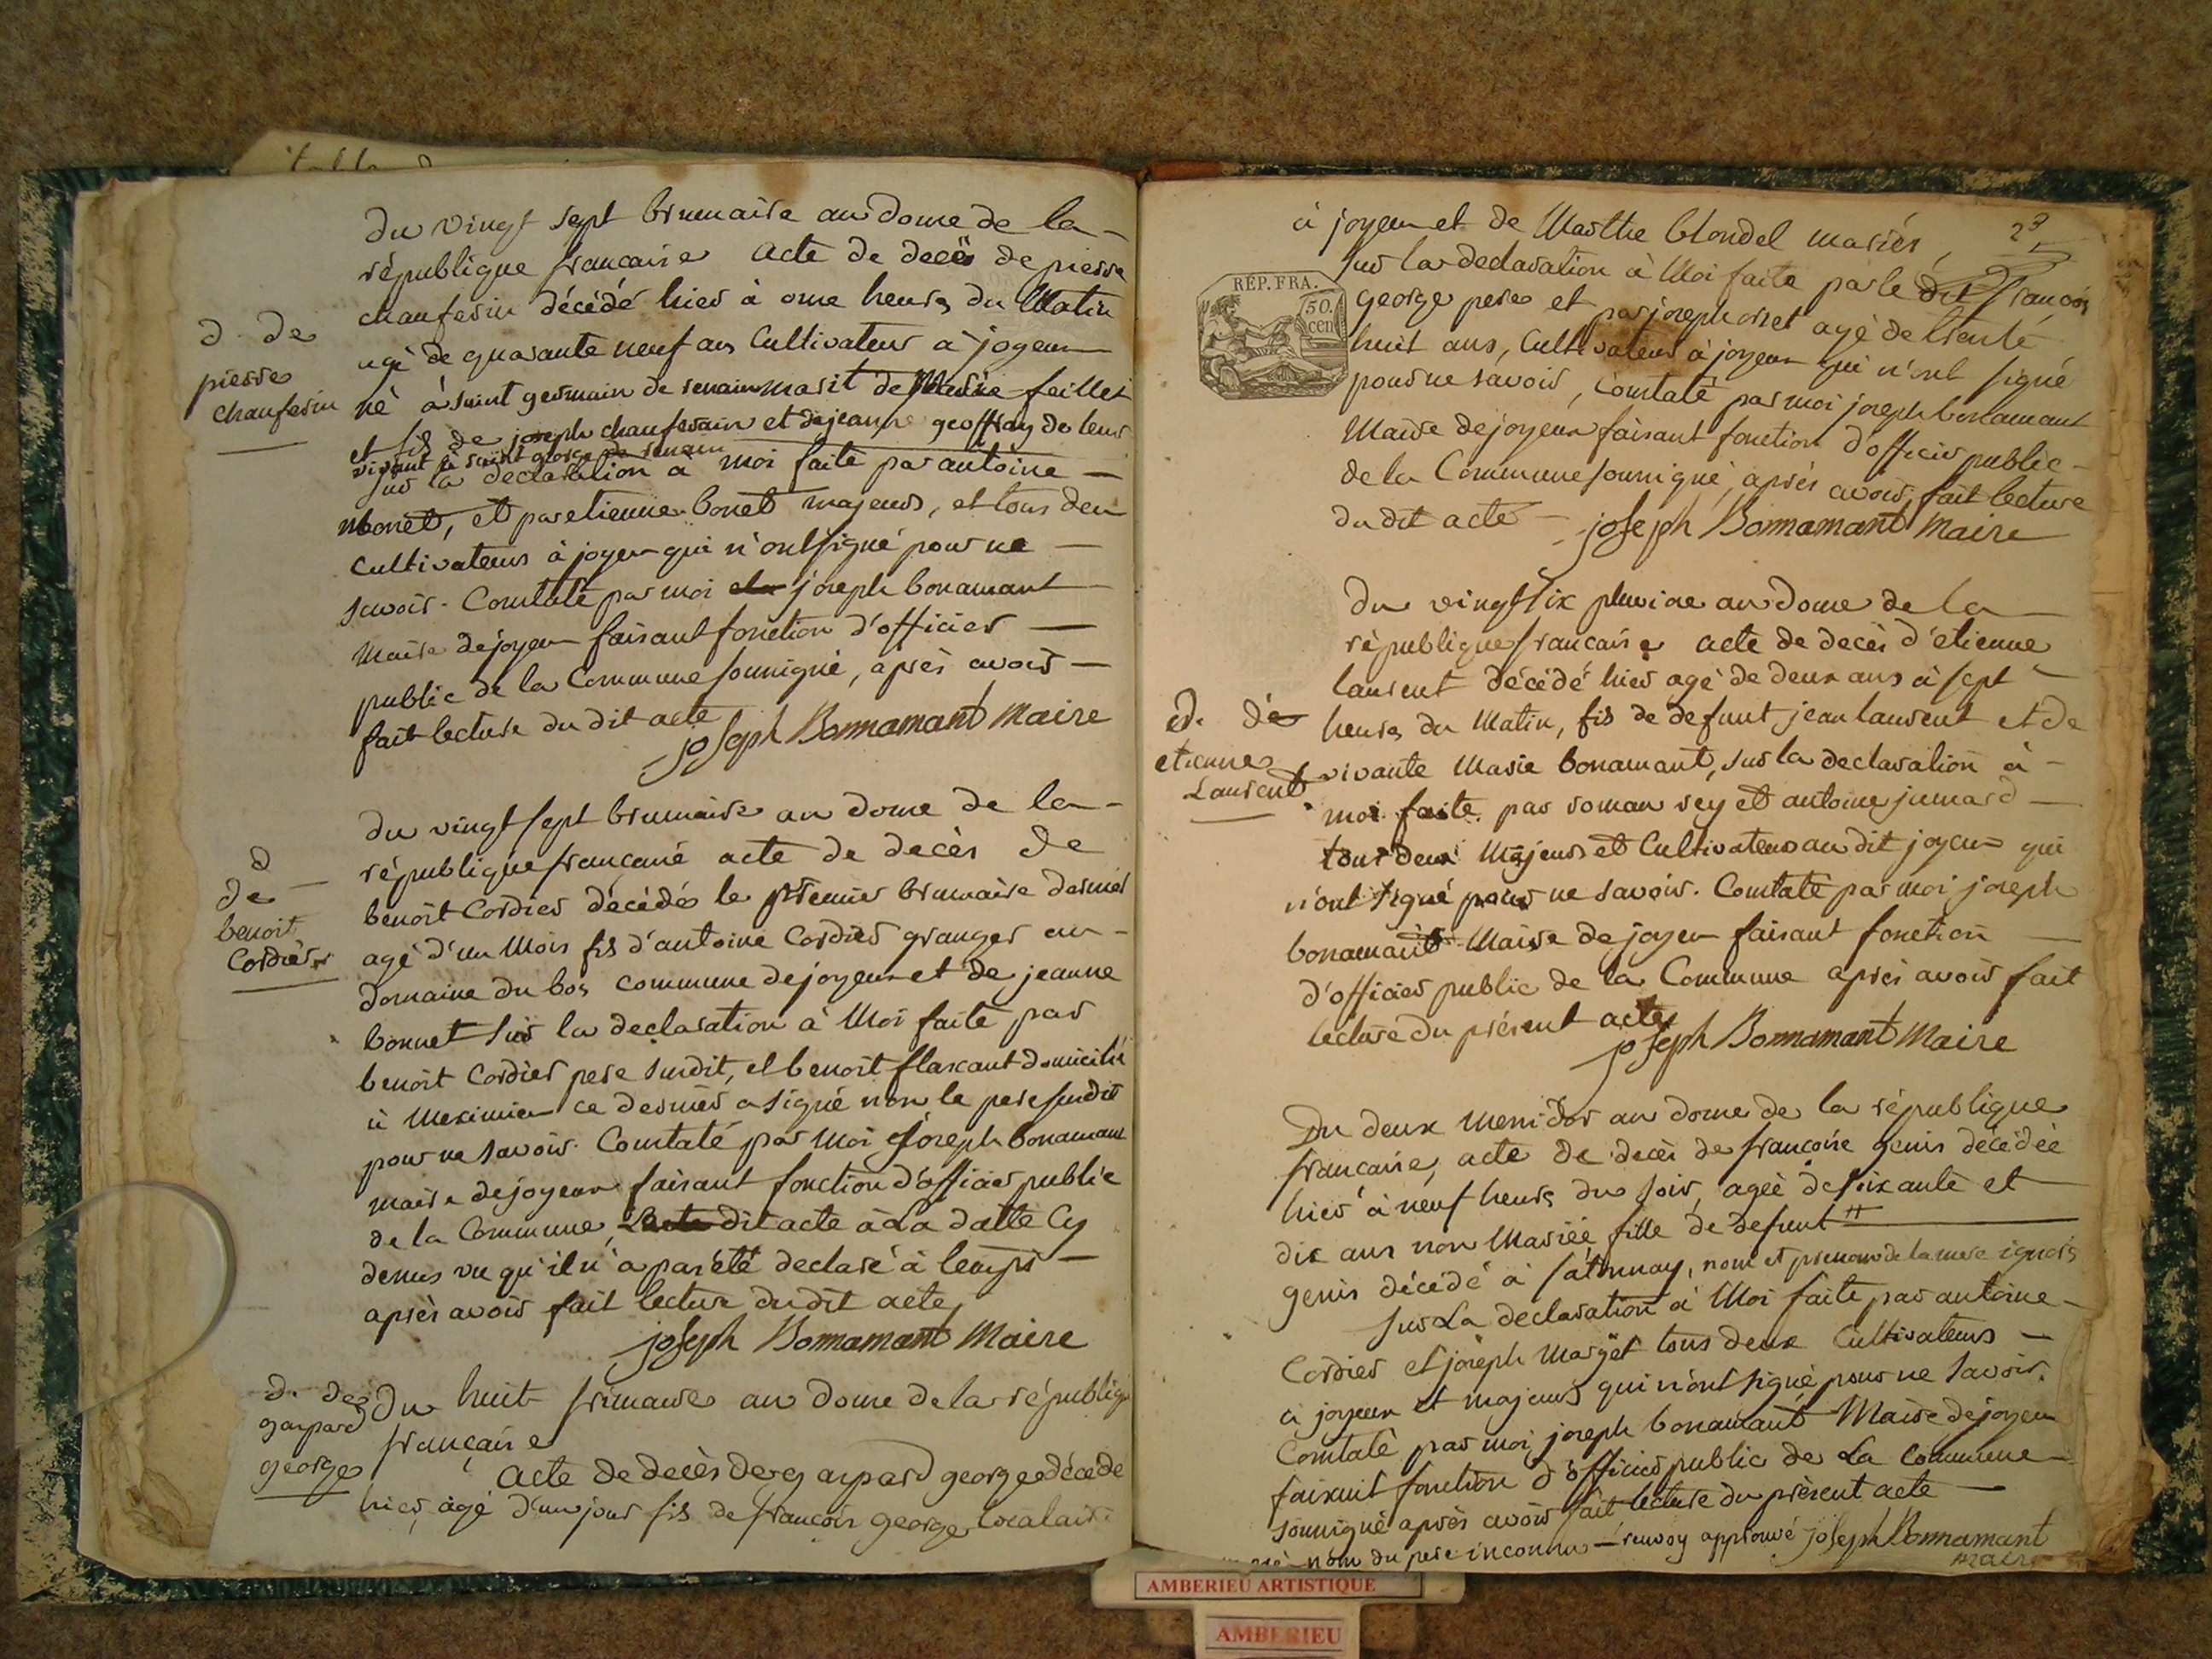 du vingt sept brumaire an dome de la
république francaise acte de decès de pierre
chanferin décédé hier à onze heures du Matin
agé de quarante neuf ans Cultivateur à joyeux
né à saint germain de renain marit de Marie feillet
et fils de joseph chanferin et de jeanne geoffray de leur
vivant à saint george de renain
sur la declaration à moi faite par antoine
monet, et par etienne bonet majeurs, et tous deux
Cultivateurs à joyeux qui n'ont signé pour ne
savoir. Constaté par moi joseph bonamant
Maire de joyeux faisant fonction d'officier
public de la Commune soussigné, après avoir
fait lecture du dit acte
joseph Bonnamant Maire
d. de
pierre
chanferin
du vingt sept brumaire an dome de la
république francaise acte de decès de
benoit Cordier décédé le premier brumaire dernier
agé d'un Mois fils d'antoine Cordier granger au
domaine du bos commune de joyeux et de jeanne
bonnet sur la declaration à Moi faite par
benoit Cordier pere susdit, et benoit flaxant domicilié
à Meximieu ce dernier a signé non le pere susdit
pour ne savoir. Constaté par Moi joseph bonamant
maire de joyeux faisant fonction d'officier public
de la Commune, dit acte à La datte Cy
denus vu qu'il n'a pas été declaré à temps
après avoir fait lecture du dit acte,
joseph Bonnamant Maire
d
de
benoit
Cordier
du huit frimaire an dome de la républiq
française
acte de decès de gaspard george décédé
hier, agé d'un jour fils de francois george
d. de
gaspard
george
23
à joyeux et de Marthe blondel mariés
sur la declaration à Moi faite par le dit francois
george pere et par joseph orset agé de trente
huit ans, Cultivateur à joyeux qui n'ont signé
pour ne savoir, constaté par moi joseph bonamant
Maire de joyeux faisant fonction d'officier public
de la Commune soussigné, après avoir fait lecture
du dit acte joseph Bonnamant Maire
RÉP. FRA.
50.
cen
du vingt six pluviae an dome de la
république francaise acte de decès d'etienne
laurent décédé hier agé de deux ans à sept
heures du Matin, fils de defunt jean laurent et de
vivante Marie bonamant, sur la declaration à
moi faite par roman rey et antoine jumard
tous deux Majeurs et Cultivateurs au dit joyeux qui
n'ont signé pour ne savoir. Constaté par moi joseph
bonamant Maire de joyeux faisant fonction
d'officier public de la Commune après avoir fait
lecture du présent acte
joseph Bonnamant Maire
d. de
etienne
Laurent
Du deux messidor an dome de la république
francaise, acte de decès de francoise genis décédée
hier à neuf heures du soir, agée de soixante et
dix ans non Mariée fille de defunt #
genis décédé à satonnay, nom et prenom de la mere ignorés
sur La declaration à Moi faite par antoine
Cordier et joseph Marget tous deux Cultivateurs
à joyeux et majeurs qui n'ont signé pour ne savoir.
Constaté par moi joseph bonamant Maire de joyeux
faisant fonction d'officier public de La Commune
soussigné après avoir fait lecture du présent acte
nom du pere inconnu - renvoy approuvé joseph Bonnamant
maire
AMBERIEU ARTISTIQUE
AMBERIEU